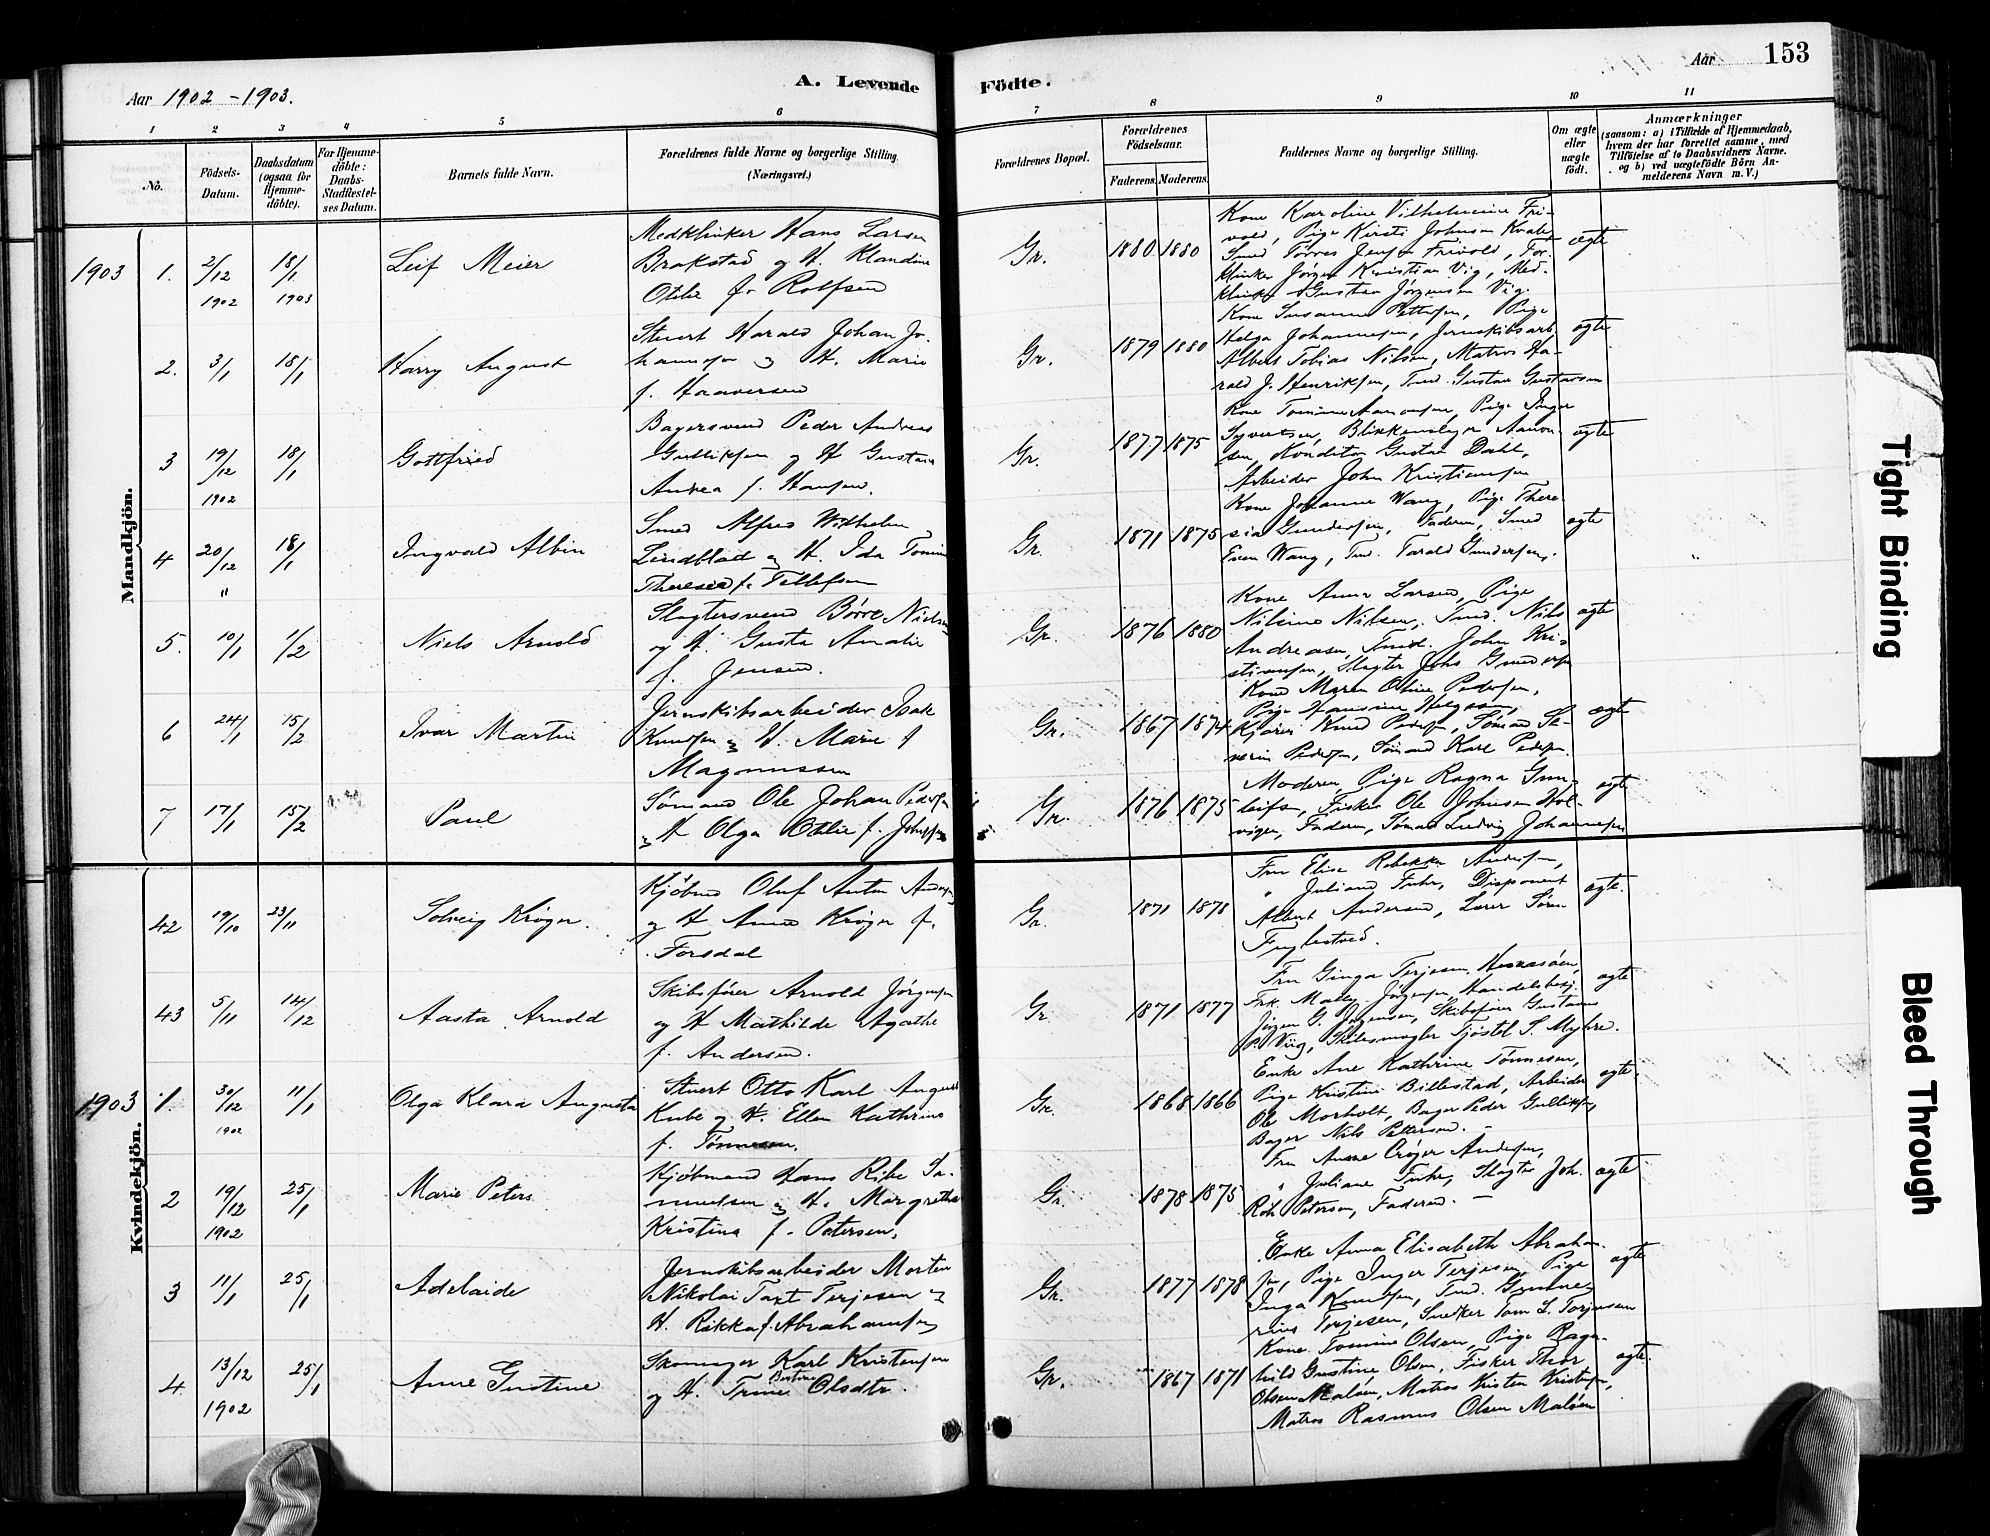 153
A. Levende Födte.
Aar 1902 - 1903.
Aar
1 2 3 4 5 6 7 8 9 10 11
No.
Födsels-Datum.
Daabsdatum (ogsaa for Hjemme-döbte).
For Hjemme-döbte: Daabs-Stadfestel-ses Datum.
Barnets fulde Navn.
Forældrenes fulde Navne og borgerlige Stilling. (Næringsvei.)
Forældrenes Bopæl.
Forældrenes Födselsaar.
Faderens. Moderens.
Faddernes Navne og borgerlige Stilling.
Om ægte eller uægte födt.
Anmærkninger
(saasom: a) i Tilfælde af Hjemmedaab,
hvem der har forrettet samme, med
Tilföielse af to Daabsvidners Navne.
og b) ved uægtefödte Börn An-
melderens Navn m. V.)
Mandkjön.
1903 1. 2/12 1902 18/1 1903 Leif Meier
Medklinker Hans Larsen
Brakstad og H. Klandine
Otilie f. Rolfsen
Gr. 1880 1880
Kone Karoline Vilhelmine Fri-
vold, Pige Kirsti Johnsen Kvale,
Smed Tørres Jensen Frivold, For-
klinker Jørgen Kristian Vig, Med-
klinker Gustav Jørgensen Vig.
ægte
2. 3/1 18/1 Harry August
Stuert Harald Johan Jo-
hannesen og H. Marie
f. Haaversen
Gr. 1879 1880
Kone Susanne Pettersen, Pige
Helga Johannesen, Jernskibsarb.
Albert Tobias Nilsen, Matros Ha-
rald J. Henriksen, Tmd. Gustav Gustavsen
ægte
3 19/12 1902 18/1 Gottfried
Bagersvend Peder Andreas
Gulliksen og H. Gustava
Andrea f. Hansen.
Gr. 1877 1875
Kone Tomine Aamonsen, Pige Inger
Syvertsen, Blikkenslager Aamon-
sen, Konditor Gustav Dahl,
Arbeider John Kristiansen
ægte
4 20/12 " 18/1 Ingvald Albin
Smed Alfred Wilhelm
Lindblad og H. Ida Tomine
Theresia f. Tellefsen
Gr. 1871 1875
Kone Johanne Wang, Pige There-
sia Gundersen, Faderen, Smed
Even Wang, Tmd. Tarald Gundersen.
ægte
5. 10/1 1/2 Niels Arnold
Slagtersvend Børre Nielsen
og H. Gusta Amalie
f. Jensen.
Gr. 1876 1880
Kone Anna Larsen, Pige
Nilsine Nilsen, Tmd. Nils
Andreasen, Tmd. John Kri-
stiansen, Slagter Johs Gundersen
ægte
6 24/1 15/2 Ivar Martin
Jernskibsarbeider Isak
Knudsen og H. Marie f
Magnussen
Gr. 1867 1874
Kone Maren Oline Pedersen,
Pige Hansine Helgesen,
Kjører Knud Pedersen, Sømand Se-
verin Pedersen, Sømand Karl Pedersen.
ægte
7 17/1 15/2 Paul
Sømand Ole Johan Pedersen
og H Olga Otilie f. Johnsen
Gr. 1876 1875
Moderen, Pige Ragna Gun-
leifsen, Fisker Ole Johnsen Hol-
vigen, Faderen, Sømand Ludvig Johannesen
ægte
Kvindekjön.
42 19/10 23/11 Solveig Krøger.
Kjøbmd Oluf Anton Andersen
og H Anna Krøger f.
Forsdal
Gr. 1871 1878
Fru Elise Rebekka Andersen,
" Juliane Fuhr, Disponent
Albert Andersen, Lærer Søren
Fuglestved.
ægte.
43 5/11 14/12 Aasta Arnold
Skibsfører Arnold Jørgensen
og H Mathilde Agathe
f. Andersen.
Gr. 1871 1877
Fru Ginga Terjesen Hesnæsøen,
Frk. Mally Jørgensen, Handelsbetj.
Jørgen G. Jørgensen, Skibsfører Gustavus
B. Viig, Skibsmægler Tjøstel S. Myhre.
ægte
1903 1. 30/12 1902 11/1 Olga Klara Augusta
Stuert Otto Karl August
Kube og H. Ellen Kathrine
f. Tønnesen.
Gr. 1868 1866
Enke Ane Kathrine Tønnesen,
Pige Kristine Billestad, Arbeider
Ole Morholt, Bager Peder Gulliksen,
Bager Nils Pettersen. -
ægte.
2 19/12 1902 25/1 Marie Peters
Kjøbmand Hans Ribe Sa-
muelsen og H. Margrethe
Kristina f. Petersen.
Gr. 1878 1875
Fru Anna Crøger Andersen,
" Juliane Fuhr, Slagter Joh.
Rob. Petersen, Faderen. -
ægte
3 11/1 25/1 Adelaide
Jernskibsarbeider Morten
Nikolai Taxt Terjesen og
H. Rikka f. Abrahamsen
Gr. 1877 1878
Enke Anna Elisabeth Abraham-
sen, Pige Inger Terjesen, Pige
Inga Knudsen, Tmd. Gunne-
rius Terjesen, Snedker Tom L. Torjusen
ægte
4 13/12 1902 25/1 Anne Gustine
Skomager Karl Kristensen
og H. Trine Bertine Olsdtr.
Gr. 1867 1871
Kone Tomine Olsen, Pige Ragn-
hild Gustine Olsen, Fisker Thor
Olsen Maløen, Matros Kristen Kristensen,
Matros Rasmus Olsen Maløen
ægte.
Tight Binding
Bleed Through